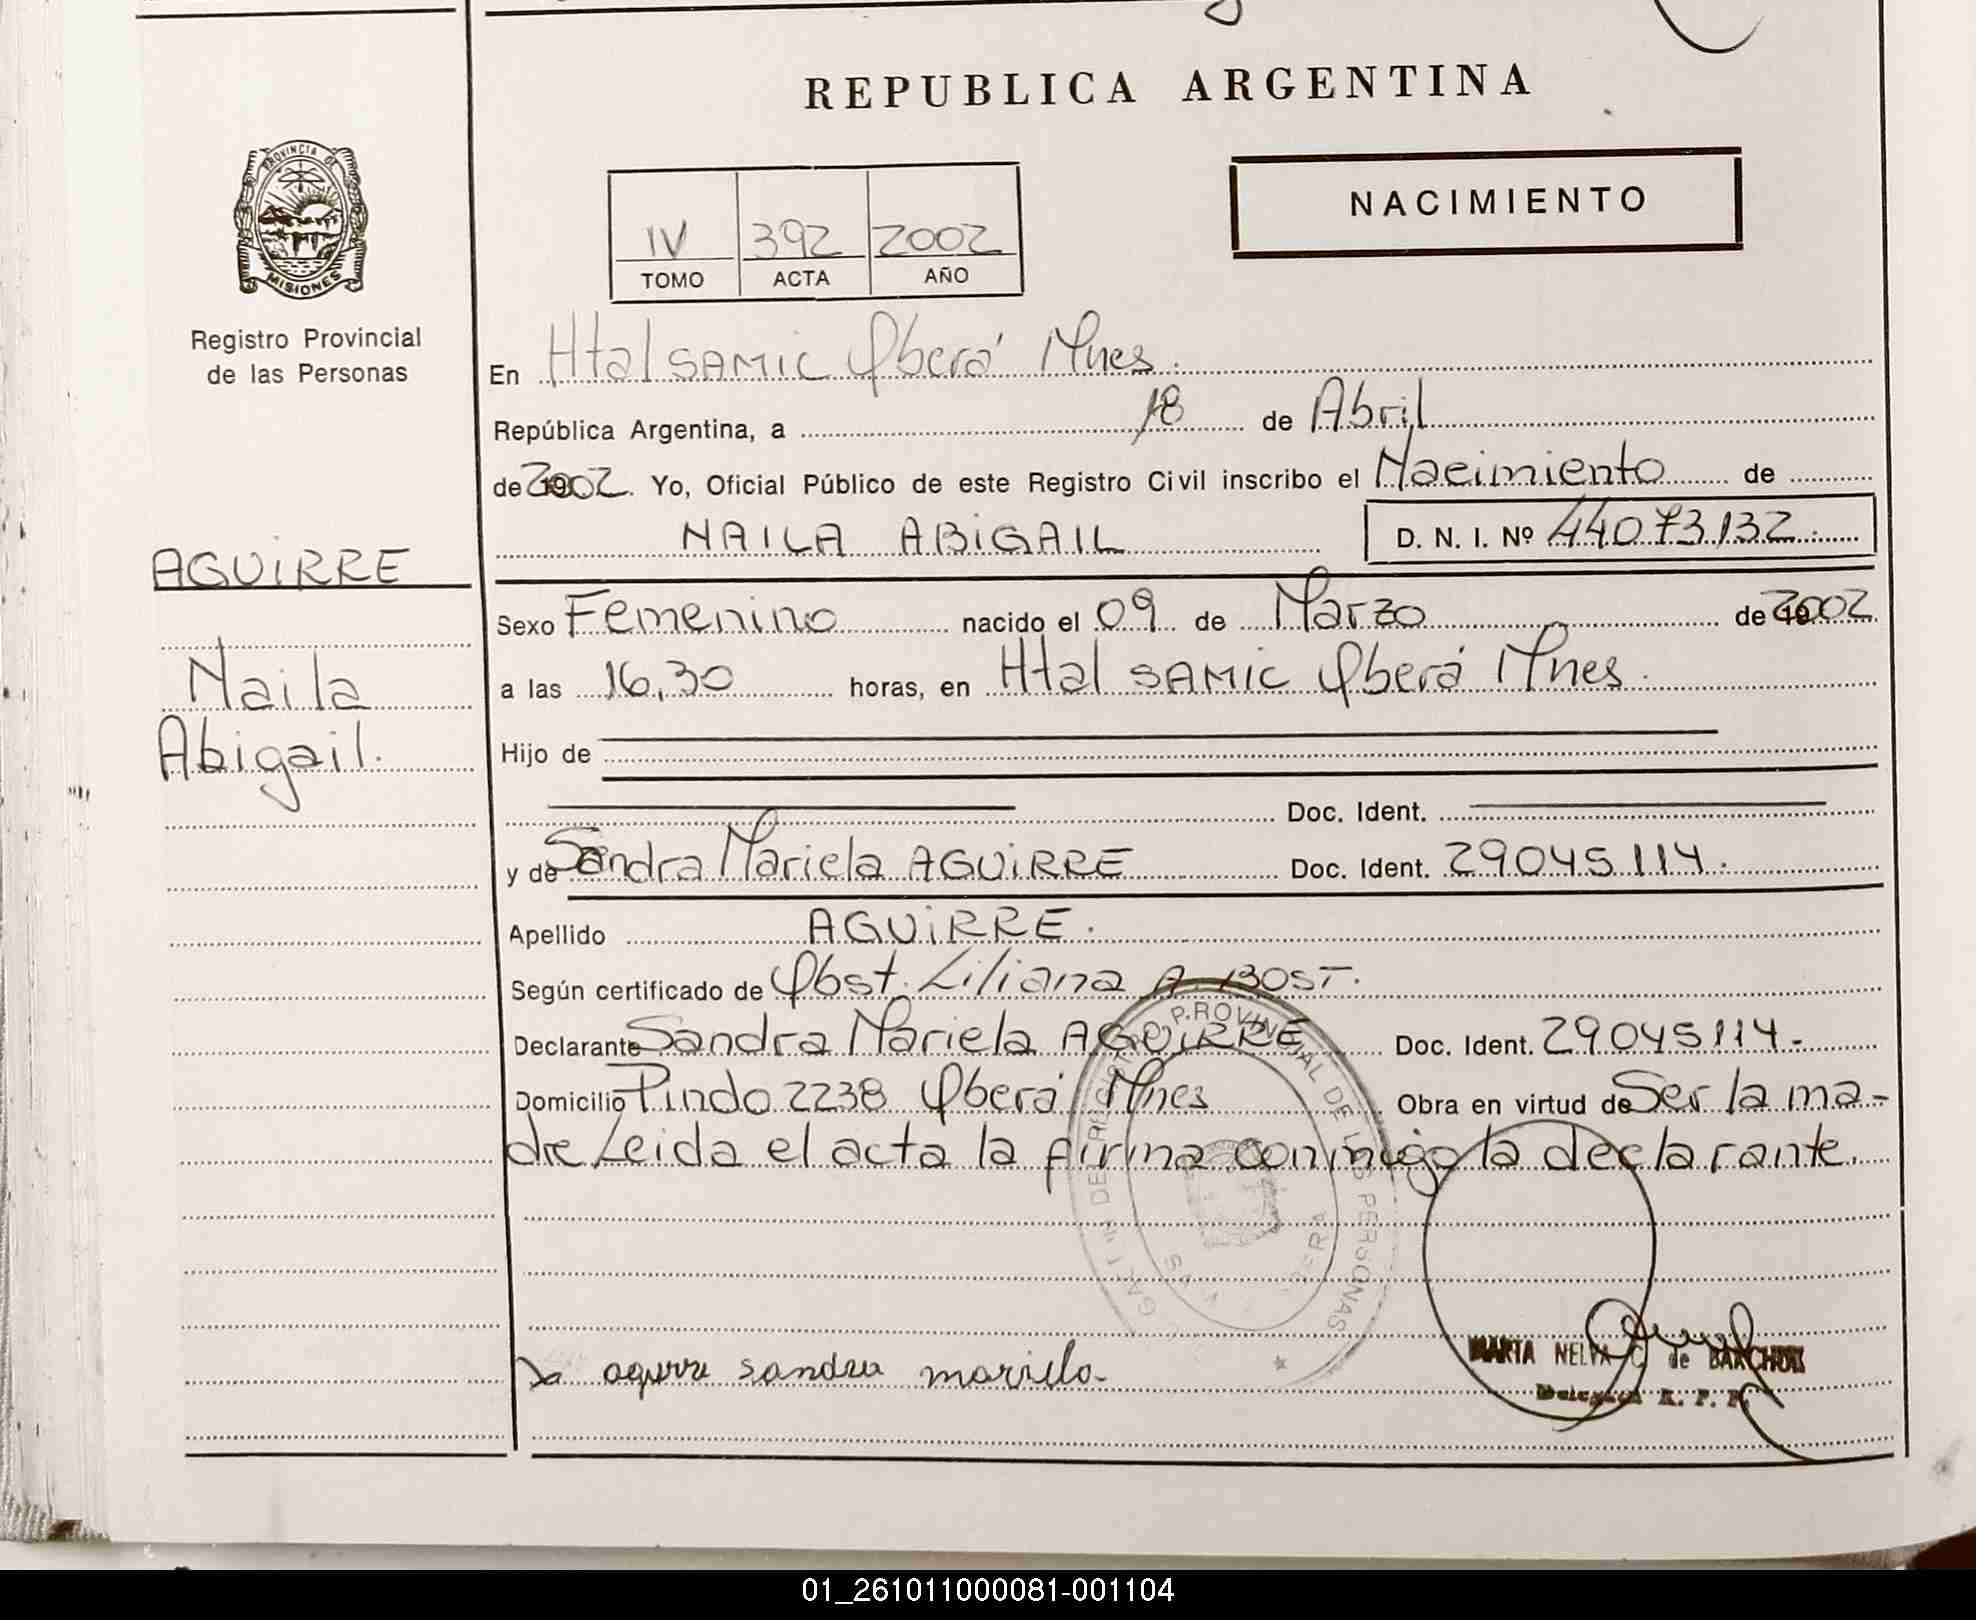 REPUBLICA ARGENTINA
PROVINCIA DE
MISIONES
Registro Provincial
de las Personas
NACIMIENTO
IV 392 2002
TOMO ACTA AÑO
En Htal SAMIC Oberá Mnes.
República Argentina, a 18 de Abril
de 2002. Yo, Oficial Público de este Registro Civil inscribo el Nacimiento de
NAILA ABIGAIL D. N. I. Nº 44073132.
AGUIRRE
Naila
Abigail.
Sexo Femenino nacido el 09 de Marzo de 2002
a las 16,30 horas, en Htal SAMIC Oberá Mnes.
Hijo de
Doc. Ident.
y de Sandra Mariela AGUIRRE Doc. Ident. 29045114.
Apellido AGUIRRE.
Según certificado de Obst. Liliana A. BOST.
Declarante Sandra Mariela AGUIRRE Doc. Ident. 29045114.-
Domicilio Pindo 2238 Oberá Mnes Obra en virtud de Ser la ma-
dre Leida el acta la firma conmigo la declarante.
PROVINCIAL DE LAS PERSONAS
aguirre sandra mariela
MARTA NELVA C. de
R. P. P.
01_261011000081-001104